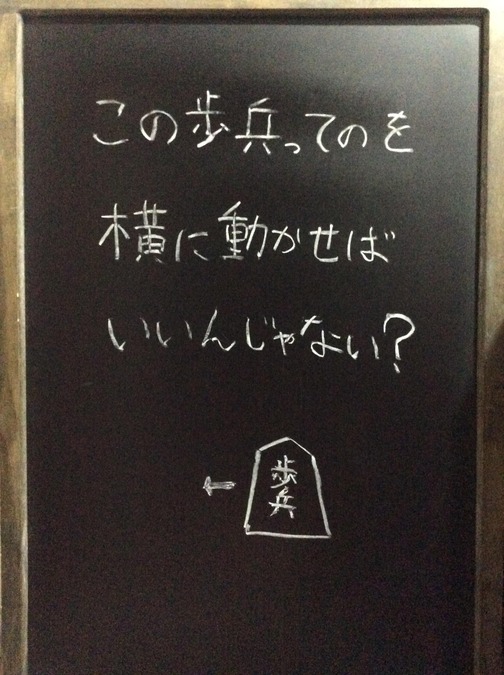 この歩兵ってのを
横に動かせば
いいんじゃない?
歩兵